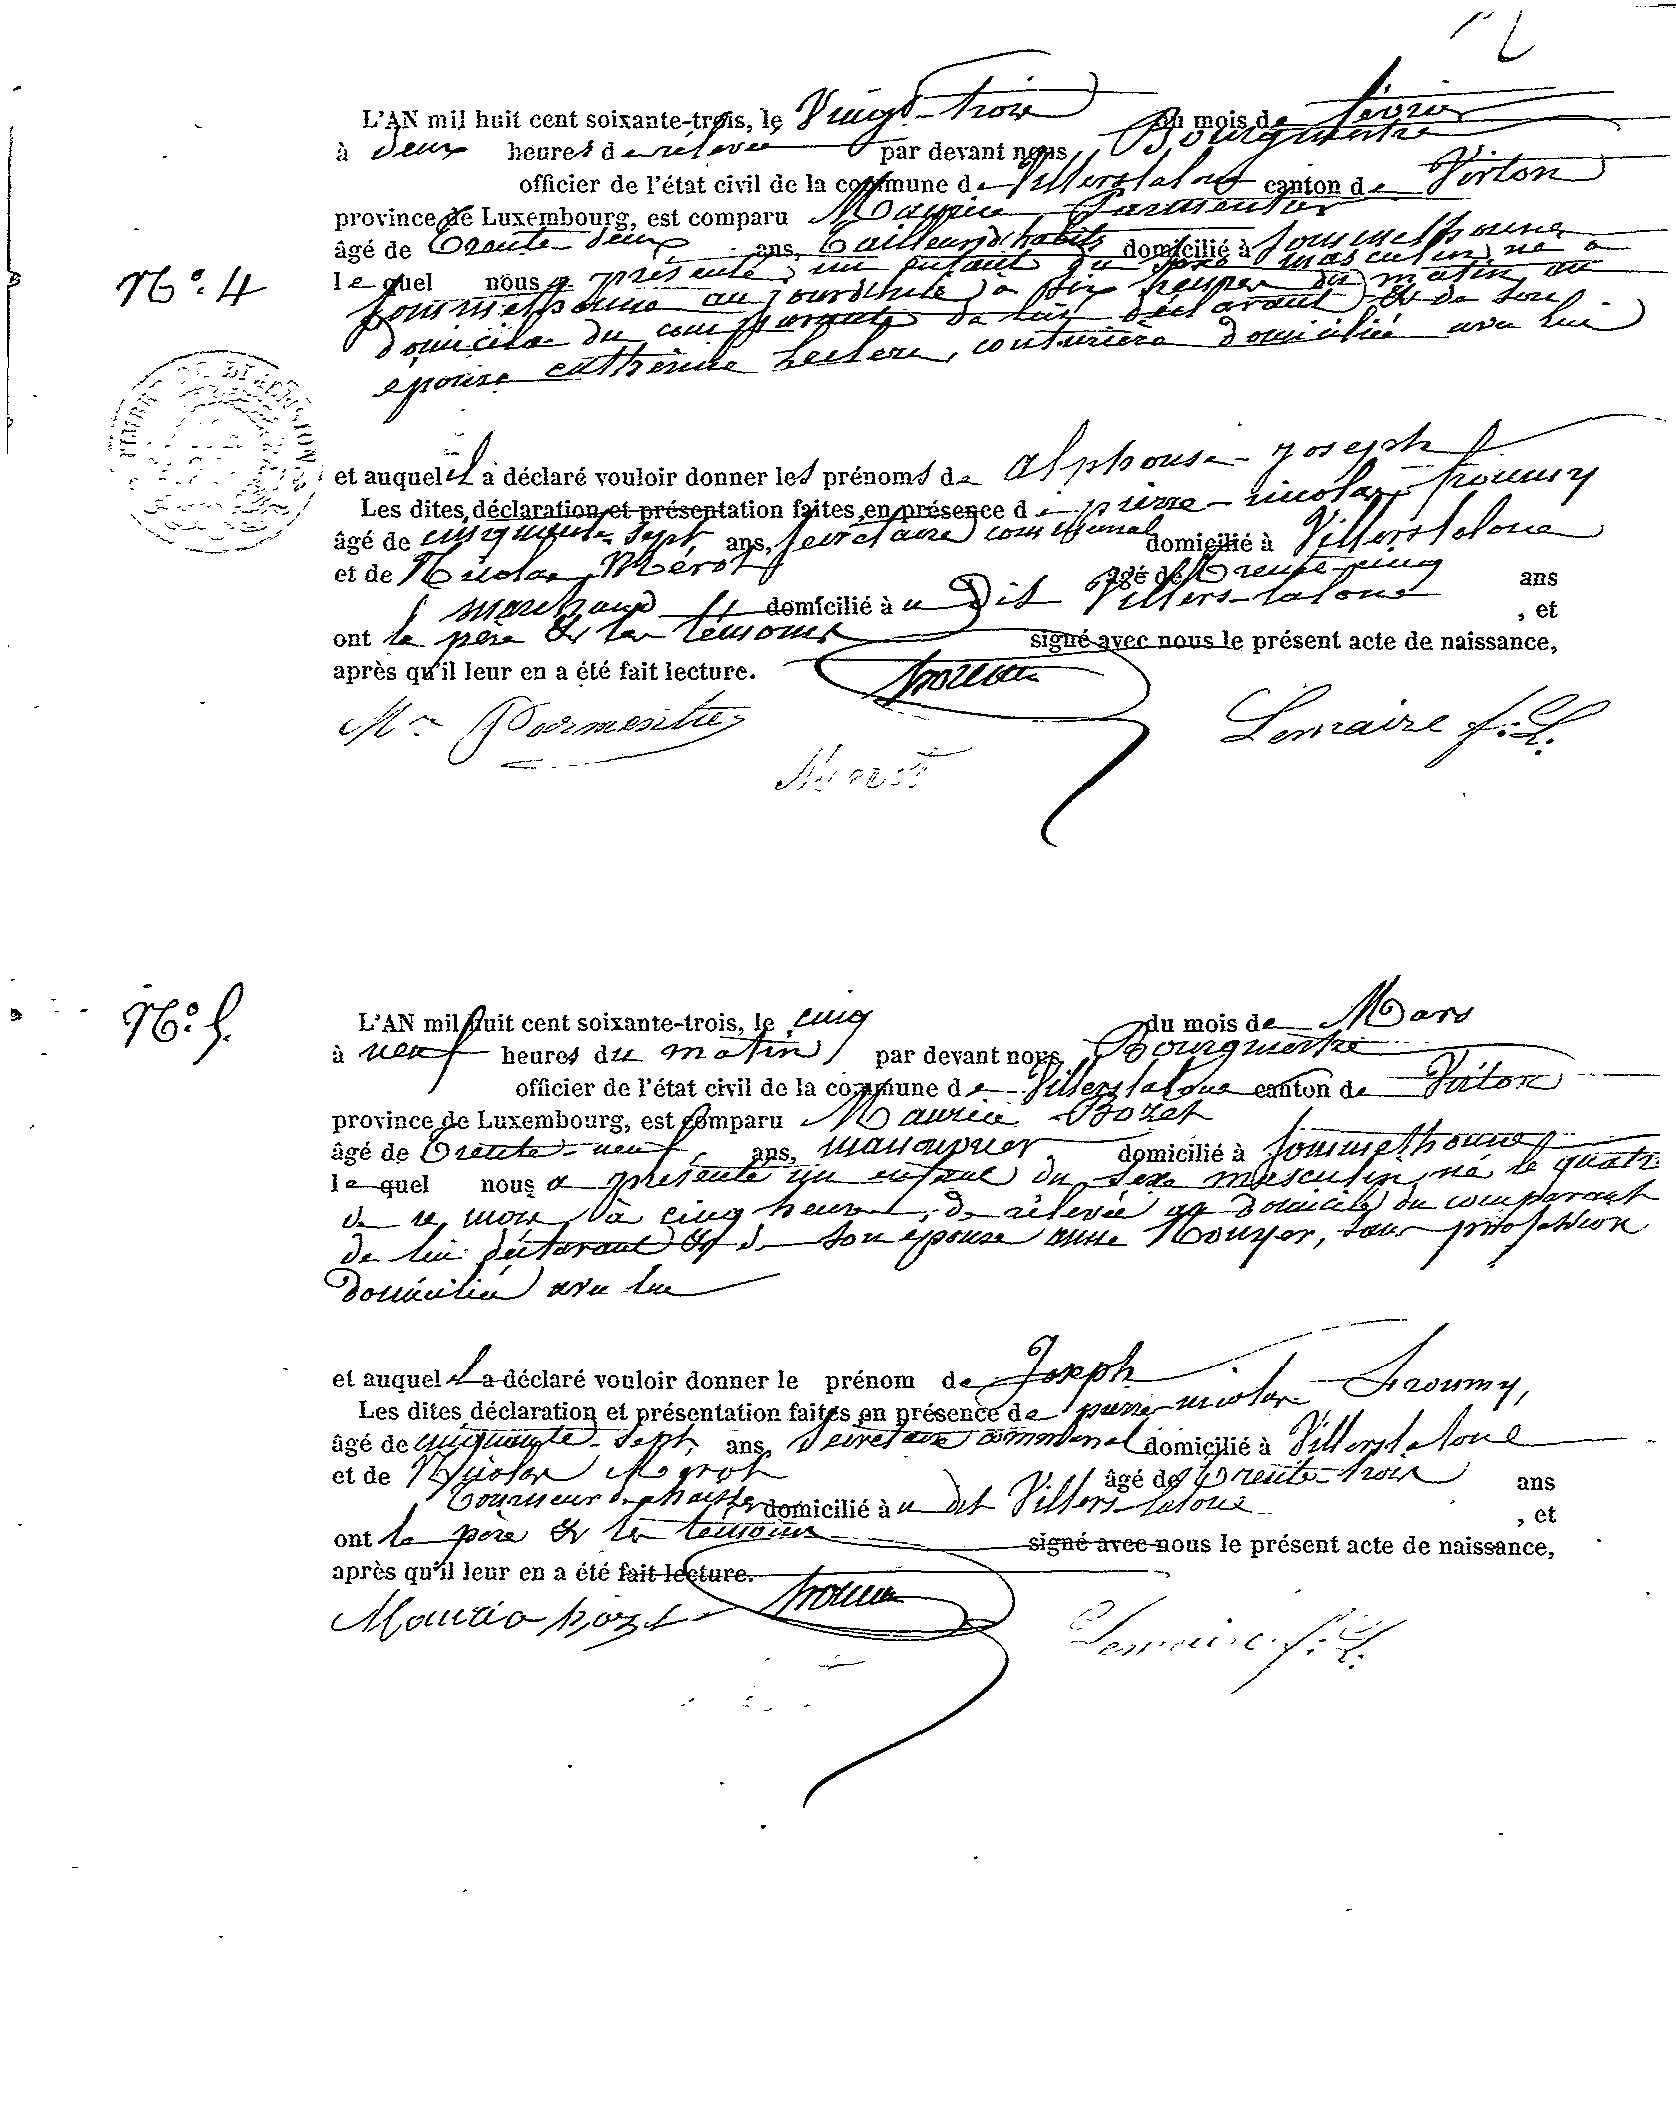 L'AN mil huit cent soixante-trois, le Vingt-trois du mois de février
à deux heures de relevée par devant nous, Bourgmestre
officier de l'état civil de la commune de Villerslaloue canton de Virton
province de Luxembourg, est comparu Maurice Parmentier
âgé de Trente-deux ans, tailleur d'habits domicilié à Sommethonne
N°. 4
lequel nous a présenté un enfant du sexe masculin, né à
Sommethonne aujourd'hui, à six heures du matin, au
domicile du comparant, de lui déclarant & de son
épouse catherine Leclere, couturière domiciliée avec lui
et auquel il a déclaré vouloir donner les prénoms de alphonse-joseph
Les dites déclaration et présentation faites en présence de pierre-nicolas froumy
âgé de cinquante-sept ans, secrétaire communal domicilié à Villerslaloue
et de Nicolas Mérot âgé de Trente-cinq ans
marchand domicilié à u Dit Villers-laloue , et
ont le père & les témoins signé avec nous le présent acte de naissance,
après qu'il leur en a été fait lecture.
Mce Parmentier froumy Lemaire f. L.
Merot
N°. 5.
L'AN mil huit cent soixante-trois, le cinq du mois de Mars
à neuf heures du matin par devant nous, Bourgmestre
officier de l'état civil de la commune de Villerslaloue canton de Virton
province de Luxembourg, est comparu Maurice Bozet
âgé de Trente-neuf ans, manoeuvrier domicilié à Sommethonne
lequel nous a présenté un enfant du sexe masculin, né le quatre
de ce mois à cinq heures de relevée au domicile du comparant
de lui déclarant & de son épouse anne Nouyer, sans profession
domiciliée avec lui
et auquel il a déclaré vouloir donner le prénom de Joseph
Les dites déclaration et présentation faites en présence de pierre-nicolas froumy,
âgé de cinquante-sept ans, secrétaire communal domicilié à Villerslaloue
et de Nicolas Merot âgé de Trente-trois ans
Tourneur de chaises domicilié à u dit Villers-laloue , et
ont le père & les témoins signé avec nous le présent acte de naissance,
après qu'il leur en a été fait lecture.
Maurice bozet froumy Lemaire f. L.